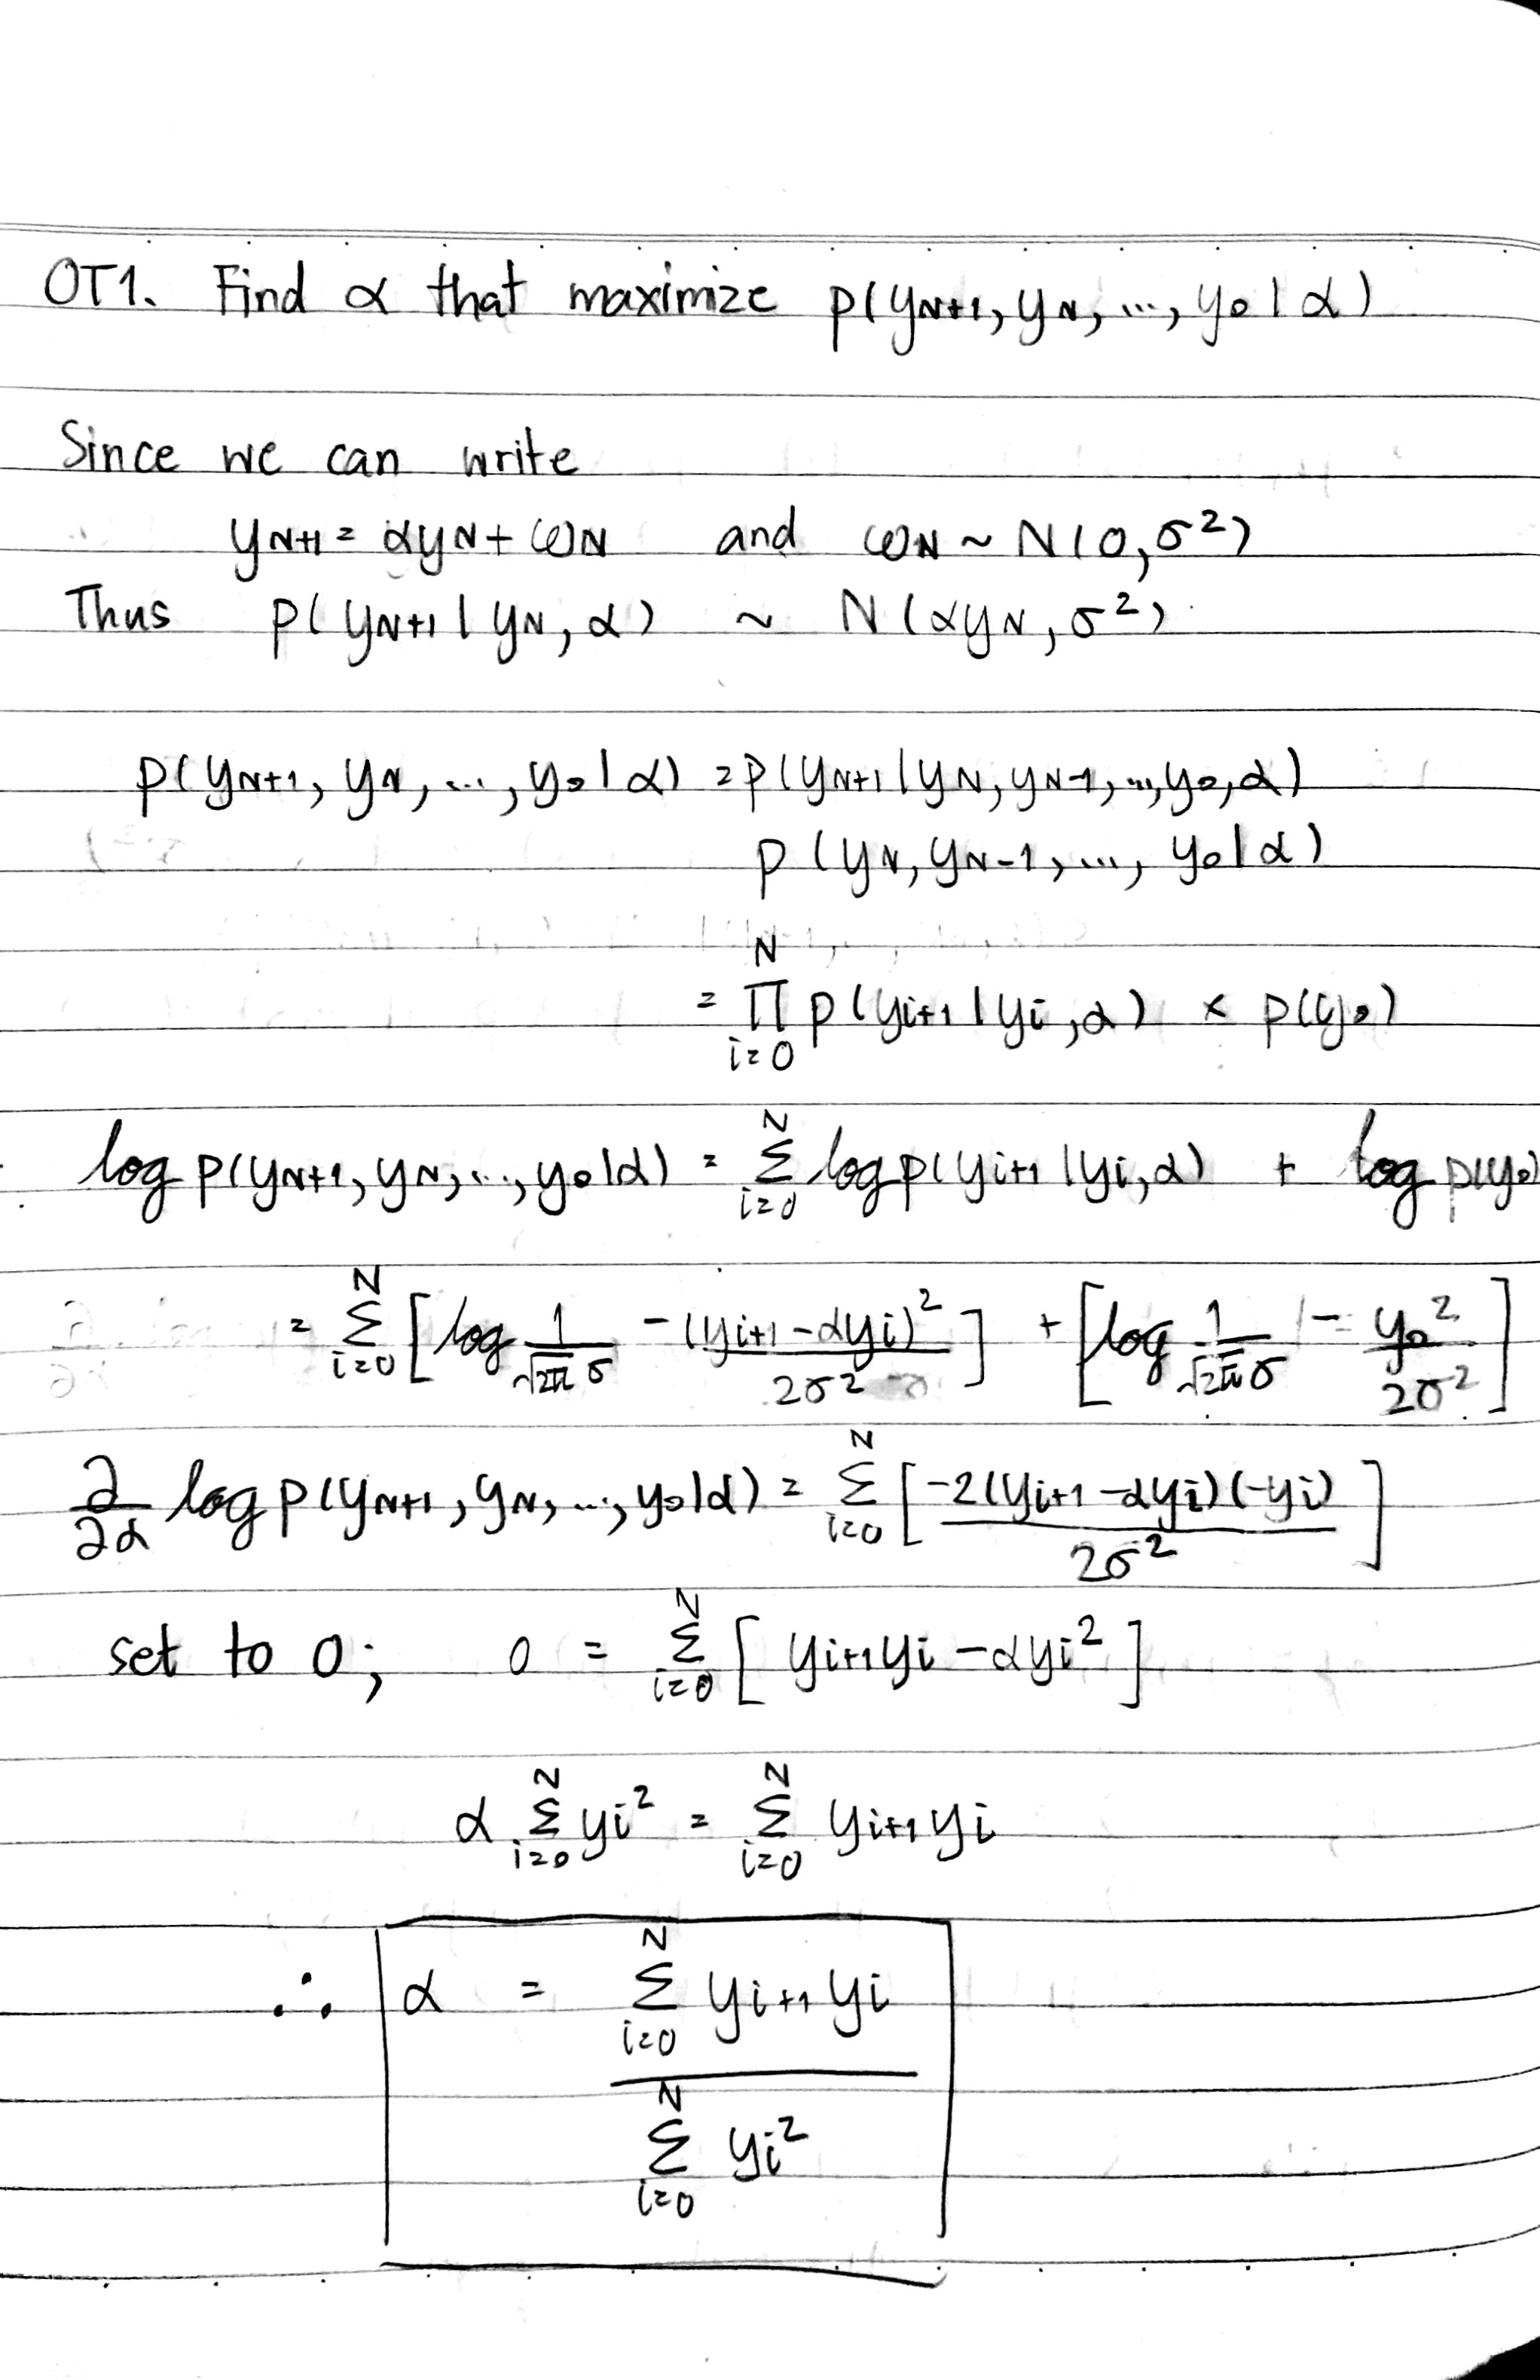 OT1. Find α that maximize p(y_{N+1}, y_N, ..., y_0 | α)
Since we can write
y_{N+1} = αy_N + ω_N and ω_N ~ N(0, σ²)
Thus p(y_{N+1} | y_N, α) ~ N(αy_N, σ²)
p(y_{N+1}, y_N, ..., y_0 | α) = p(y_{N+1} | y_N, y_{N-1}, ..., y_0, α)
p(y_N, y_{N-1}, ..., y_0 | α)
= ∏_{i=0}^{N} p(y_{i+1} | y_i, α) × p(y_0)
log p(y_{N+1}, y_N, ..., y_0 | α) = Σ_{i=0}^{N} log p(y_{i+1} | y_i, α) + log p(y_0)
= Σ_{i=0}^{N} [log 1/(√2π σ) - (y_{i+1} - αy_i)²/2σ²] + [log 1/(√2π σ) - y_0²/2σ²]
∂/∂α log p(y_{N+1}, y_N, ..., y_0 | α) = Σ_{i=0}^{N} [-2(y_{i+1} - αy_i)(-y_i)/2σ²]
set to 0; 0 = Σ_{i=0}^{N} [y_{i+1}y_i - αy_i²]
α Σ_{i=0}^{N} y_i² = Σ_{i=0}^{N} y_{i+1}y_i
∴ α = Σ_{i=0}^{N} y_{i+1}y_i / Σ_{i=0}^{N} y_i²